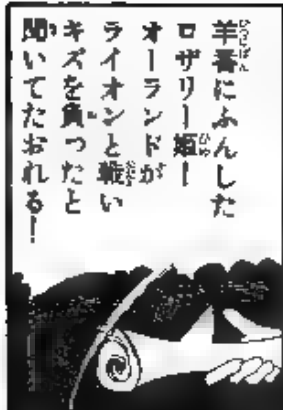 羊番にふんした
ロザリー姫！
オーランドが
ライオンと戦い
キズを負ったと
聞いてたおれる！